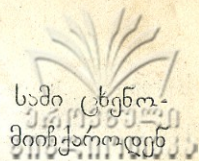 სამი ცხენო-
მიიჩქაროდენ